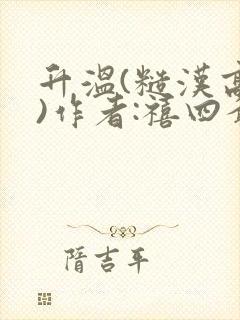 升溫(糙漢高
)作者:禧四
隋吉平